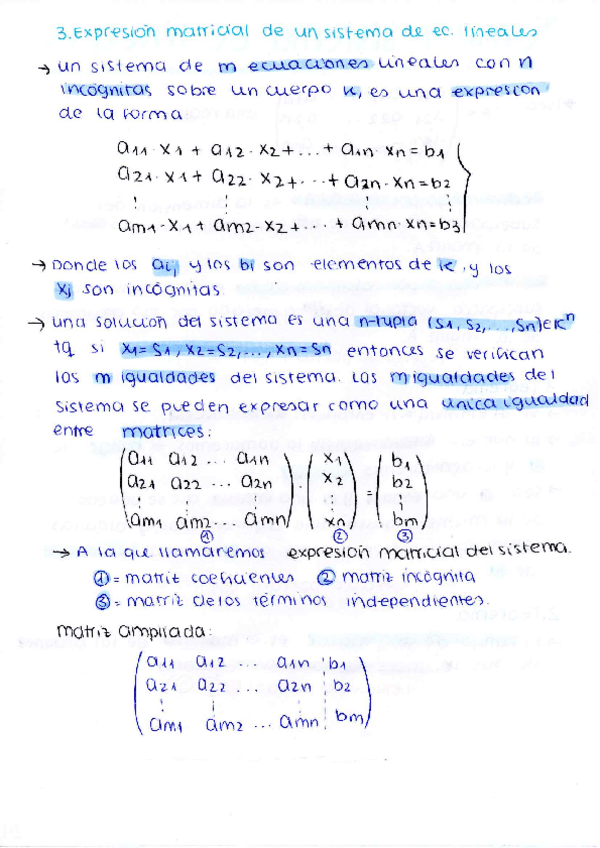 3. Expresión matricial de un sistema de ec. lineales
→ un sistema de m ecuaciones lineales con n
incógnitas sobre un cuerpo K, es una expresion
de la forma
a11·x1 + a12·x2 + ... + a1n·xn = b1
a21·x1 + a22·x2 + ... + a2n·xn = b2
⋮ ⋮ ⋮ ⋮
am1·x1 + am2·x2 + ... + amn·xn = b3
→ Donde los aij y los bi son elementos de K, y los
xj son incógnitas
→ una solución del sistema es una n-tupla (s1, s2, ..., sn) ∈ K^n
tq si x1 = s1, x2 = s2, ..., xn = sn entonces se verifican
las m igualdades del sistema. Las m igualdades del
sistema se pueden expresar como una única igualdad
entre matrices:
(a11 a12 ... a1n) (x1) (b1)
(a21 a22 ... a2n) · (x2) = (b2)
⋮ ⋮ ⋮ ⋮ ⋮
(am1 am2 ... amn) (xn) (bm)
① ② ③
→ A la que llamaremos expresión matricial del sistema.
① = matriz coeficientes ② matriz incógnita
③ = matriz de los términos independientes.
matriz ampliada:
(a11 a12 ... a1n ⋮ b1)
(a21 a22 ... a2n ⋮ b2)
⋮ ⋮ ⋮ ⋮
(am1 am2 ... amn ⋮ bm)